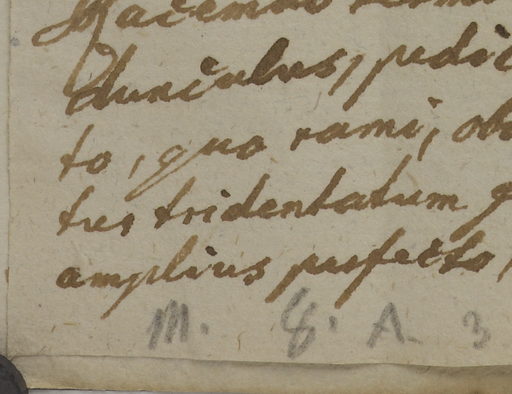 dunculus, pedic
to, quo rami, ob
tus tridentatum
amplius perfecto,
M. 8. A 3